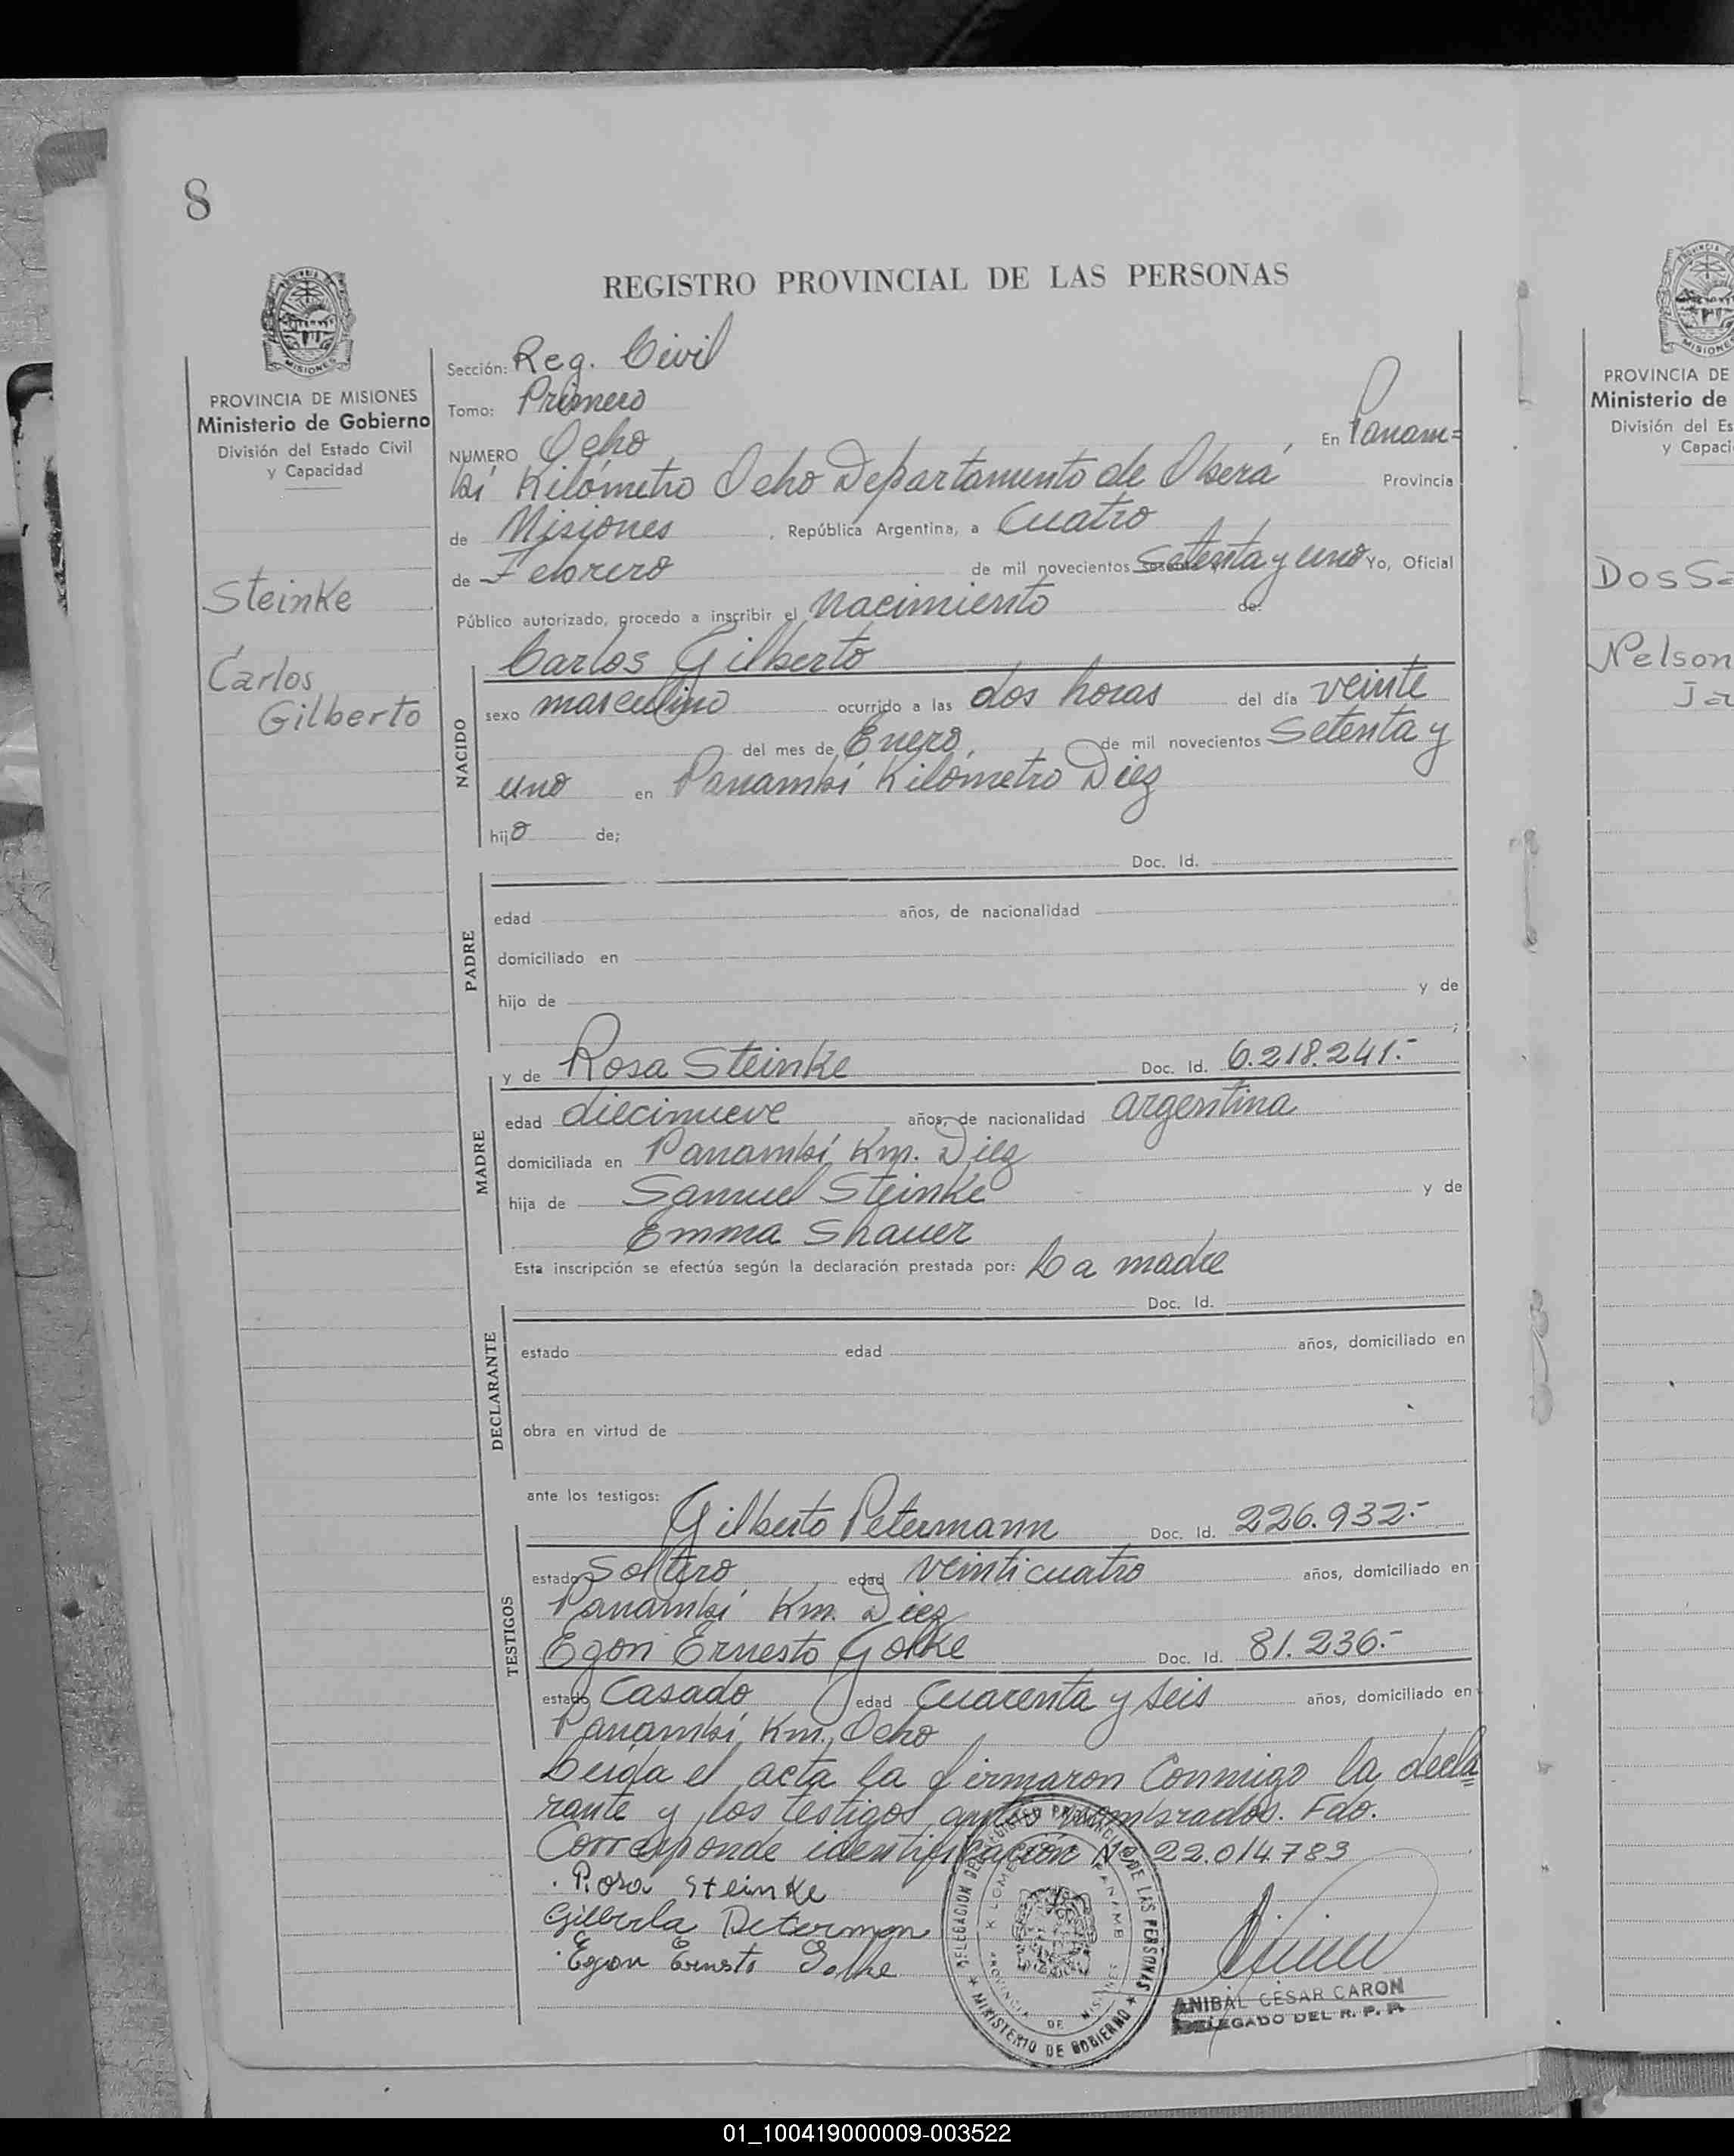 8
REGISTRO PROVINCIAL DE LAS PERSONAS
MISIONES
PROVINCIA DE MISIONES
Ministerio de Gobierno
División del Estado Civil
y Capacidad
Steinke
Carlos
Gilberto
Sección: Reg. Civil
Tomo: Primero
NUMERO Ocho En Panam=
bí Kilómetro Ocho Departamento de Oberá Provincia
de Misiones , República Argentina, a Cuatro
de Febrero de mil novecientos Setenta y uno Yo, Oficial
Público autorizado, procedo a inscribir el nacimiento de:
NACIDO
Carlos Gilberto
sexo masculino ocurrido a las dos horas del día veinte
del mes de Enero, de mil novecientos Setenta y
uno en Panambí Kilómetro Diez
hijo de;
PADRE
Doc. Id.
edad años, de nacionalidad
domiciliado en
hijo de y de
;
MADRE
y de Rosa Steinke Doc. Id. 6.218.241.-
edad diecinueve años, de nacionalidad argentina
domiciliada en Panambí Km. Diez
hija de Samuel Steinke y de
Emma Shauer
Esta inscripción se efectúa según la declaración prestada por: La madre
DECLARANTE
Doc. Id.
estado edad años, domiciliado en
obra en virtud de
ante los testigos:
TESTIGOS
Gilberto Petermann Doc. Id. 226.932.-
estado Soltero edad veinticuatro años, domiciliado en
Panambí Km. Diez
Egon Ernesto Golke Doc. Id. 81.236.-
estado Casado edad Cuarenta y seis años, domiciliado en
Panambí Km. Ocho
Leída el acta la firmaron Conmigo la decla
rante y los testigos antes nombrados. Fdo.
Corresponde identificación Nº 22.014783
Rosa Steinke
Egon Ernesto Golke
DELEGACION DEL REGISTRO PROVINCIAL DE LAS PERSONAS
MINISTERIO DE GOBIERNO
PROVINCIA DE MISIONES
ANIBAL CESAR CARON
DELEGADO DEL R. P. P.
PROVINCIA DE
Ministerio de
División del Es
y Capaci
Dos Sa
Nelson
Ja
01_100419000009-003522